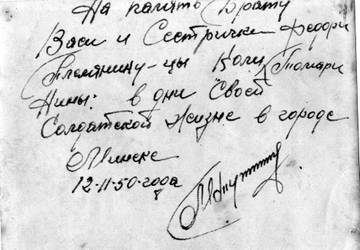 На память Брату
Васи и Сестрички Федори
Племяннику-цы Коли, Томари
Нины: в дни Своей
Солдатской Жизне в городе
Минске
12-11-50-года